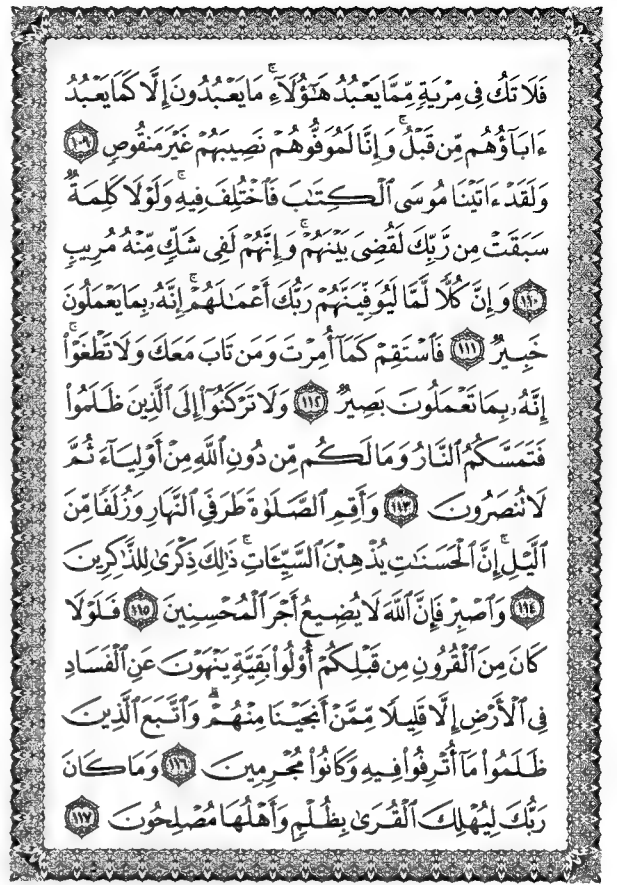 فَلَا تَكُ فِى مِرْيَةٍ مِّمَّا يَعْبُدُ هَٰٓؤُلَآءِ ۚ مَا يَعْبُدُونَ إِلَّا كَمَا يَعْبُدُ
ءَابَآؤُهُم مِّن قَبْلُ ۚ وَإِنَّا لَمُوَفُّوهُمْ نَصِيبَهُمْ غَيْرَ مَنقُوصٍ ١٠٩
وَلَقَدْ ءَاتَيْنَا مُوسَى ٱلْكِتَٰبَ فَٱخْتُلِفَ فِيهِ ۚ وَلَوْلَا كَلِمَةٌ
سَبَقَتْ مِن رَّبِّكَ لَقُضِىَ بَيْنَهُمْ ۚ وَإِنَّهُمْ لَفِى شَكٍّ مِّنْهُ مُرِيبٍ
١١٠ وَإِنَّ كُلًّا لَّمَّا لَيُوَفِّيَنَّهُمْ رَبُّكَ أَعْمَٰلَهُمْ ۚ إِنَّهُۥ بِمَا يَعْمَلُونَ
خَبِيرٌ ١١١ فَٱسْتَقِمْ كَمَآ أُمِرْتَ وَمَن تَابَ مَعَكَ وَلَا تَطْغَوْا۟ ۚ
إِنَّهُۥ بِمَا تَعْمَلُونَ بَصِيرٌ ١١٢ وَلَا تَرْكَنُوٓا۟ إِلَى ٱلَّذِينَ ظَلَمُوا۟
فَتَمَسَّكُمُ ٱلنَّارُ وَمَا لَكُم مِّن دُونِ ٱللَّهِ مِنْ أَوْلِيَآءَ ثُمَّ
لَا تُنصَرُونَ ١١٣ وَأَقِمِ ٱلصَّلَوٰةَ طَرَفَىِ ٱلنَّهَارِ وَزُلَفًا مِّنَ
ٱلَّيْلِ ۚ إِنَّ ٱلْحَسَنَٰتِ يُذْهِبْنَ ٱلسَّيِّـَٔاتِ ۚ ذَٰلِكَ ذِكْرَىٰ لِلذَّٰكِرِينَ
١١٤ وَٱصْبِرْ فَإِنَّ ٱللَّهَ لَا يُضِيعُ أَجْرَ ٱلْمُحْسِنِينَ ١١٥ فَلَوْلَا
كَانَ مِنَ ٱلْقُرُونِ مِن قَبْلِكُمْ أُو۟لُوا۟ بَقِيَّةٍ يَنْهَوْنَ عَنِ ٱلْفَسَادِ
فِى ٱلْأَرْضِ إِلَّا قَلِيلًا مِّمَّنْ أَنجَيْنَا مِنْهُمْ ۗ وَٱتَّبَعَ ٱلَّذِينَ
ظَلَمُوا۟ مَآ أُتْرِفُوا۟ فِيهِ وَكَانُوا۟ مُجْرِمِينَ ١١٦ وَمَا كَانَ
رَبُّكَ لِيُهْلِكَ ٱلْقُرَىٰ بِظُلْمٍ وَأَهْلُهَا مُصْلِحُونَ ١١٧